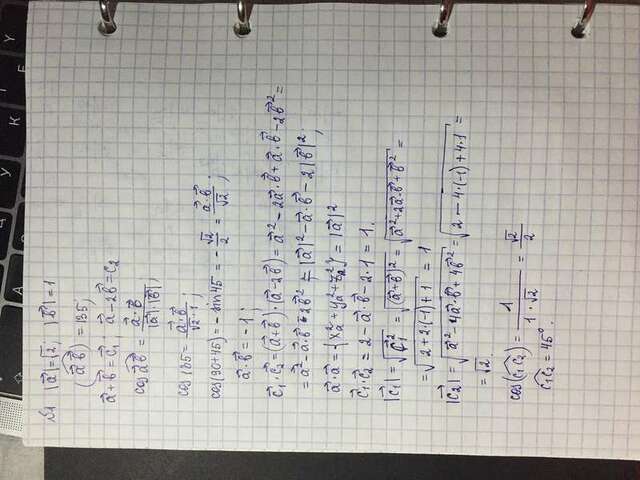 №1 |a⃗|=√2; |b⃗|=1
(a⃗ b⃗) = 135;
a⃗+b⃗ = c⃗₁; a⃗-2b⃗=c₂
cos a⃗b⃗ = a⃗·b⃗/|a⃗|·|b⃗|;
cos 135 = a⃗·b⃗/√2·1;
cos(90+45) = -sin45 = -√2/2 = a⃗·b⃗/√2;
a⃗·b⃗ = -1;
c⃗₁·c⃗₂ = (a⃗+b⃗)·(a⃗-2b⃗) = a⃗² - 2a⃗·b⃗ + a⃗·b⃗ - 2b⃗² =
= a⃗² - a⃗·b⃗ - 2b⃗² = |a⃗|² - a⃗·b⃗ - 2|b⃗|²;
a⃗·a⃗ = {x²a + y²a + z²a} = |a⃗|²
c⃗₁·c⃗₂ = 2 - a⃗·b⃗ - 2·1 = 1.
|c⃗₁| = √c⃗₁² = √(a⃗+b⃗)² = √a⃗²+2a⃗·b⃗+b⃗² =
= √2+2·(-1)+1 = 1
|c⃗₂| = √a⃗²-4a⃗·b⃗+4b⃗² = √2-4·(-1)+4·1 =
= √2.
cos(c₁c₂) = 1/1·√2 = √2/2
c₁c₂ = 45°.